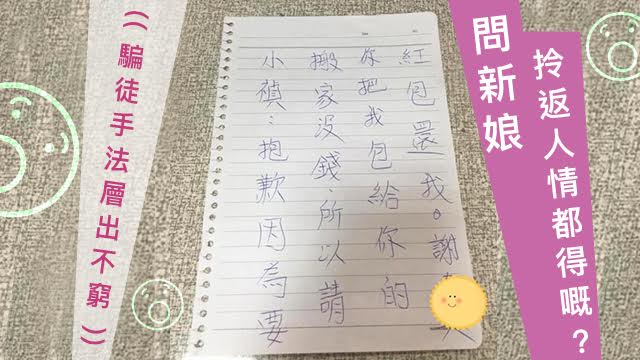 問新娘
拎返人情都得嘅？
小禎：抱歉因為要
搬家沒錢、所以請
你把我包給你的
紅包還我。謝
((騙徒手法層出不窮))